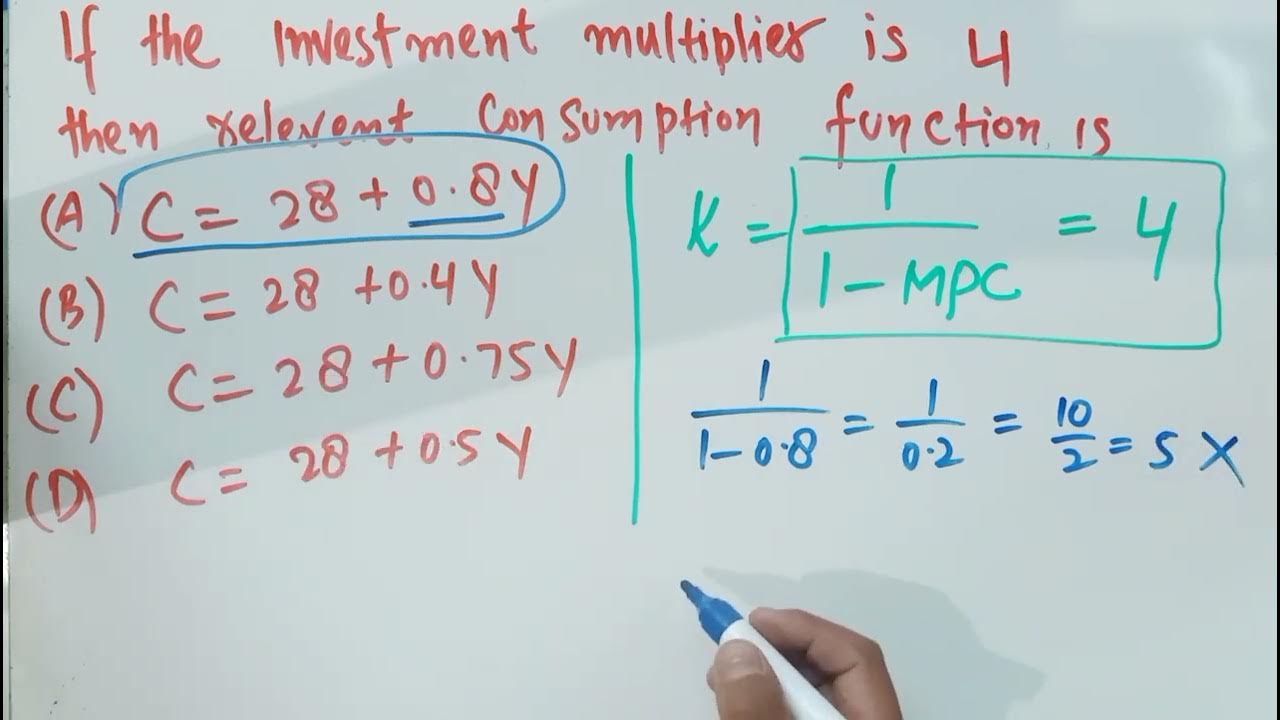 If the Investment multiplier is 4
then relevent Consumption function is
(A) C = 28 + 0.8Y
(B) C = 28 + 0.4Y
(C) C = 28 + 0.75Y
(D) C = 28 + 0.5Y
K = 1 / 1 - MPC = 4
1 / 1 - 0.8 = 1 / 0.2 = 10 / 2 = 5 X